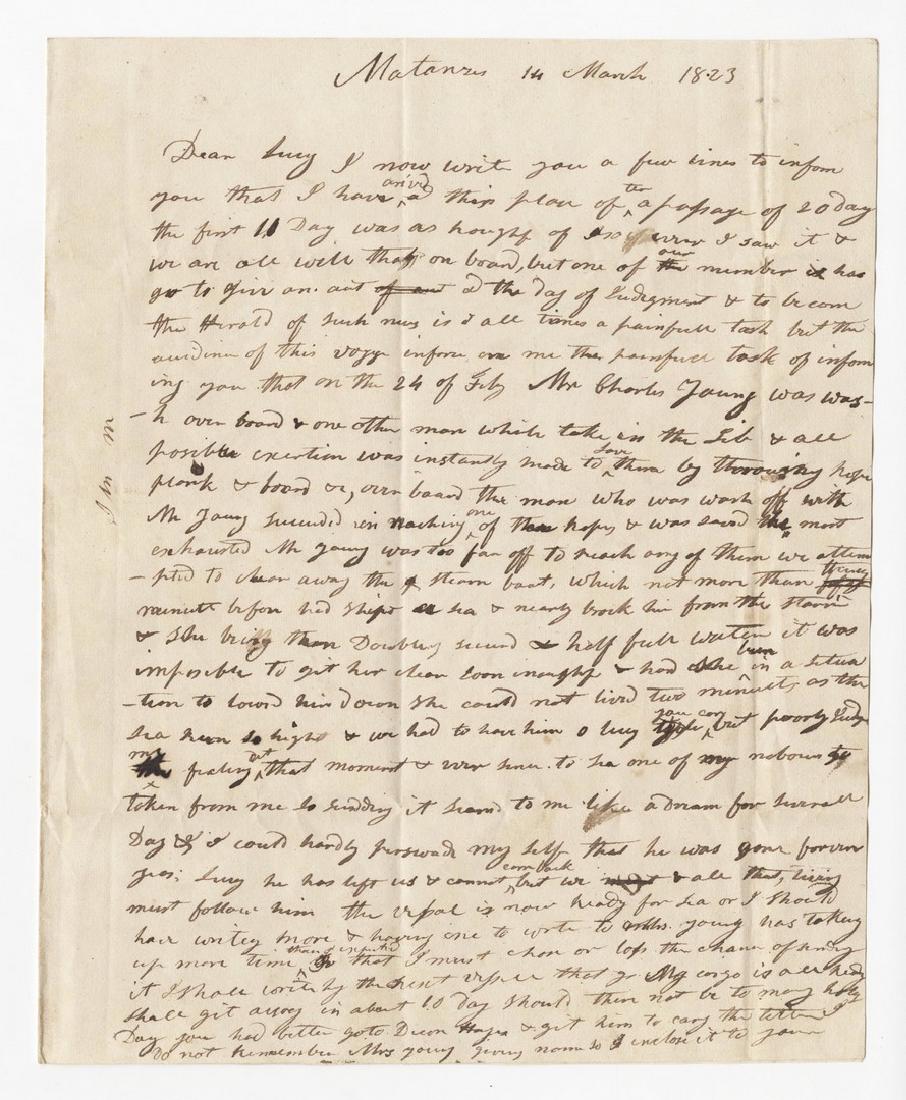 Matanzes 14 March 1823
Dear Lucy I now write you a few lines to inform
you that I have arived a this place of ter a passage of 20 day
the first 11 Day was as I saw it &
we are all well on board, but one of our number is has
go to give an. aut of aut at the day of Judegment & to becom
the Herald of such nus is at all times a painfull task but the
of this voyge inforce on me the painfull task of inform
ing you that on the 24 of Feby Mr Charles Young was was-
-h over board & one other man which take in the Jib & all
posible exertion was instantly made to save them by throwing ropes
plank & board &c, over board the man who was wash off with
Mr Young succeded in reaching one of the ropes & was saved most
exhausted Mr Young was too far off to reach any of them we attem
-pted to clear away the stearn boat, which not more than
minuets before had shipt a sea & nearly brock her from the
& She being then Doubley & half full water it was
imposible to get her clear soon inought & had she bin in a setua
-tion to lowerd her down She could not lived two minuets, as the
sea run so high & we had to leave him you can but poorly Judge
my fealing at that moment & ever since. to sea one of my nabours
token from me so sudding it seamd to me like a dream for Severall
Day & I could hardly perswade my self that he was gone forever
yes; Lucy he has left us & cannot com back but we must & all that, living
must follow him the vessal is now ready for sea or I should
have writen more & having one to write to Mrs. young has taking
up more time than I expected So that I must close or loss the chance of
it I shall write by the next vessel that go My cargo is all ready
shall git away in about 10 day should there not be to many holy
Day you had better goto Decon & git him to cary the letter I
do not remember Mrs young given name so I inclose it to your